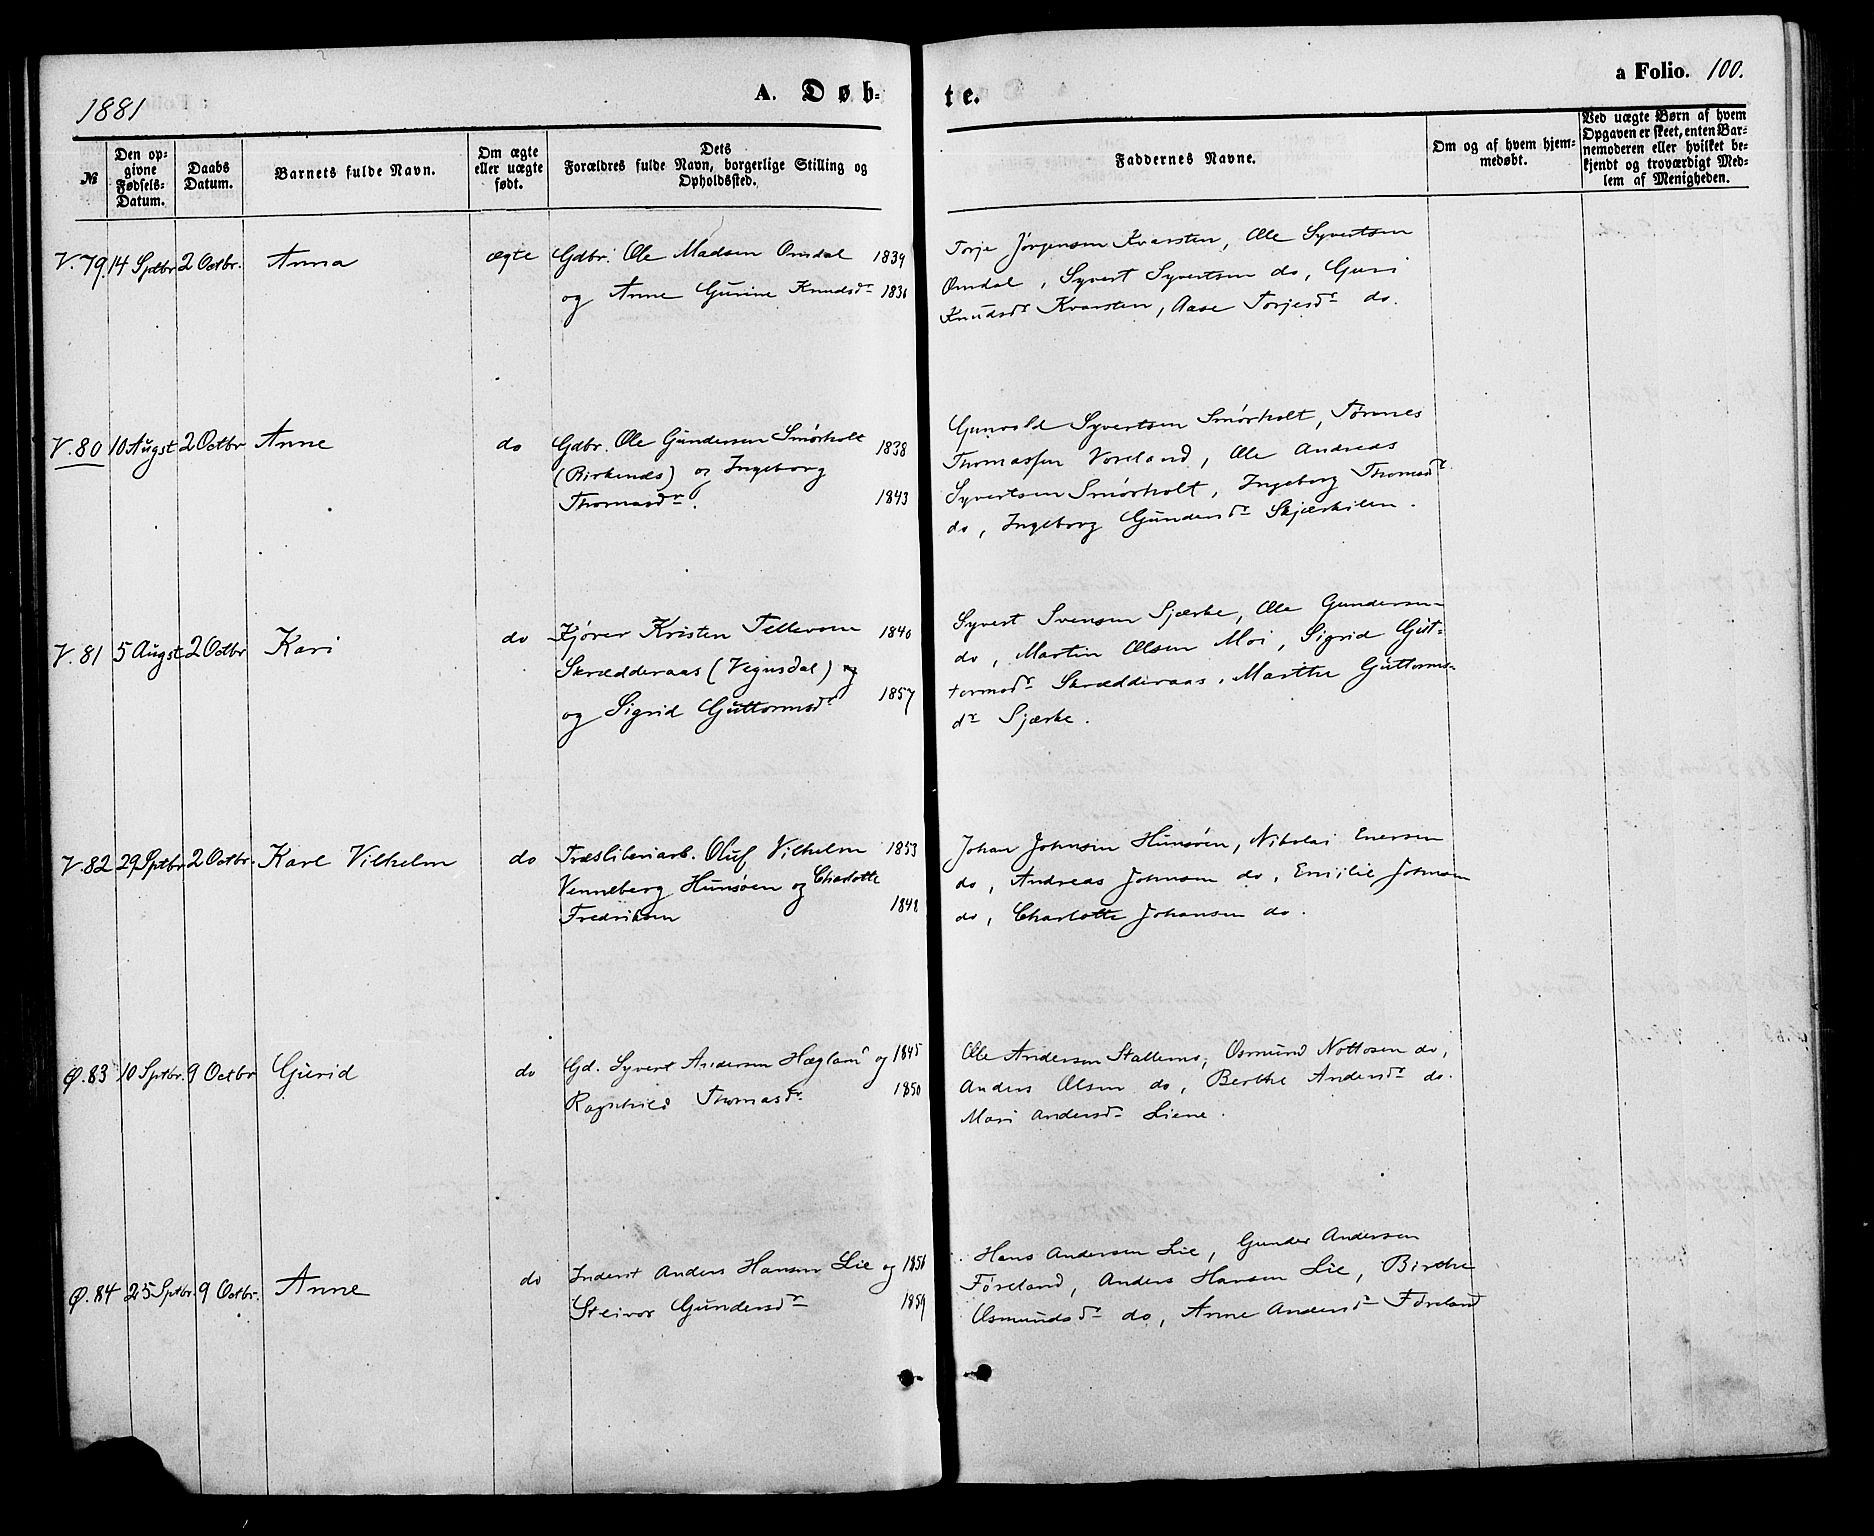 1881
A. Døb-
te.
a Folio. 100.
№
Den op-
givne
Fødsels-
Datum.
Daabs
Datum.
Barnets fulde Navn.
Om ægte
eller uægte
født.
Dets
Forældres fulde Navn, borgerlige Stilling og
Opholdssted.
Faddernes Navne.
Om og af hvem hjem-
medøbt.
Ved uægte Børn af hvem
Opgaven er skeet, enten Bar-
nemoderen eller hvilket be-
kjendt og troværdigt Med-
lem af Menigheden.
V. 79. 14 Sptbr 2 Octbr. Anna ægte Gdbr. Ole Madsen Omdal 1839
og Anne Gurine Knudsdr 1836
Torje Jørgensen Kvarsten, Ole Syvertsen
Omdal, Syvert Syvertsen do, Guri
Knudsdr Kvarsten, Aase Torjesdr do.
V. 80 10 Augst 2 Octbr Anne do Gdbr. Ole Gundersen Smörholt 1838
(Birkends) og Ingeborg
Thomasdr. 1843
Gunvald Syvertsen Smörholt, Tönnes
Thomassen Voreland, Ole Andreas
Syvertsen Smörholt, Ingeborg Thomasdr
do, Ingeborg Gundersdr Skjærkilen.
V. 81 5 Augst 2 Octbr Kari do Kjører Kristen Tellevsen 1840
Skrædderaas (Vegusdal) og
og Sigrid Guttormsdr 1857
Syvert Svensen Sjærke, Ole Gundersen
do, Martin Olsen Moi, Sigrid Gut-
tormsdr Skrædderaas, Marthe Guttorms-
dr Sjærke.
V. 82 29 Sptbr 2 Octbr. Karl Vilhelm do Træsliberiarb. Oluf Vilhelm 1853
Venneberg Hunsöen og Charlotte
Fredriksen 1848
Johan Johnsen Hunsöen, Nikolai Enersen
do, Andreas Johnsen do, Emilie Johnsen
do, Charlotte Johansen do.
Ø. 83 10 Sptbr. 9 Octbr Gurid do Gd. Syvert Andersen Hægland og 1845
Ragnhild Thomasdr 1850
Ole Andersen Stallemo, Osmund Nottosen do,
Anders Olsen do, Berthe Andersdr do.
Mari Andersdr Liene.
Ø. 84 25 Sptbr. 9 Octbr. Anne do Inderst Anders Hansen Lie og 1856
Steivor Gundersdr 1859
Hans Andersen Lie, Gunder Andersen
Föreland, Anders Hansen Lie, Birthe
Osmundsdr do, Anne Andersdr Föreland